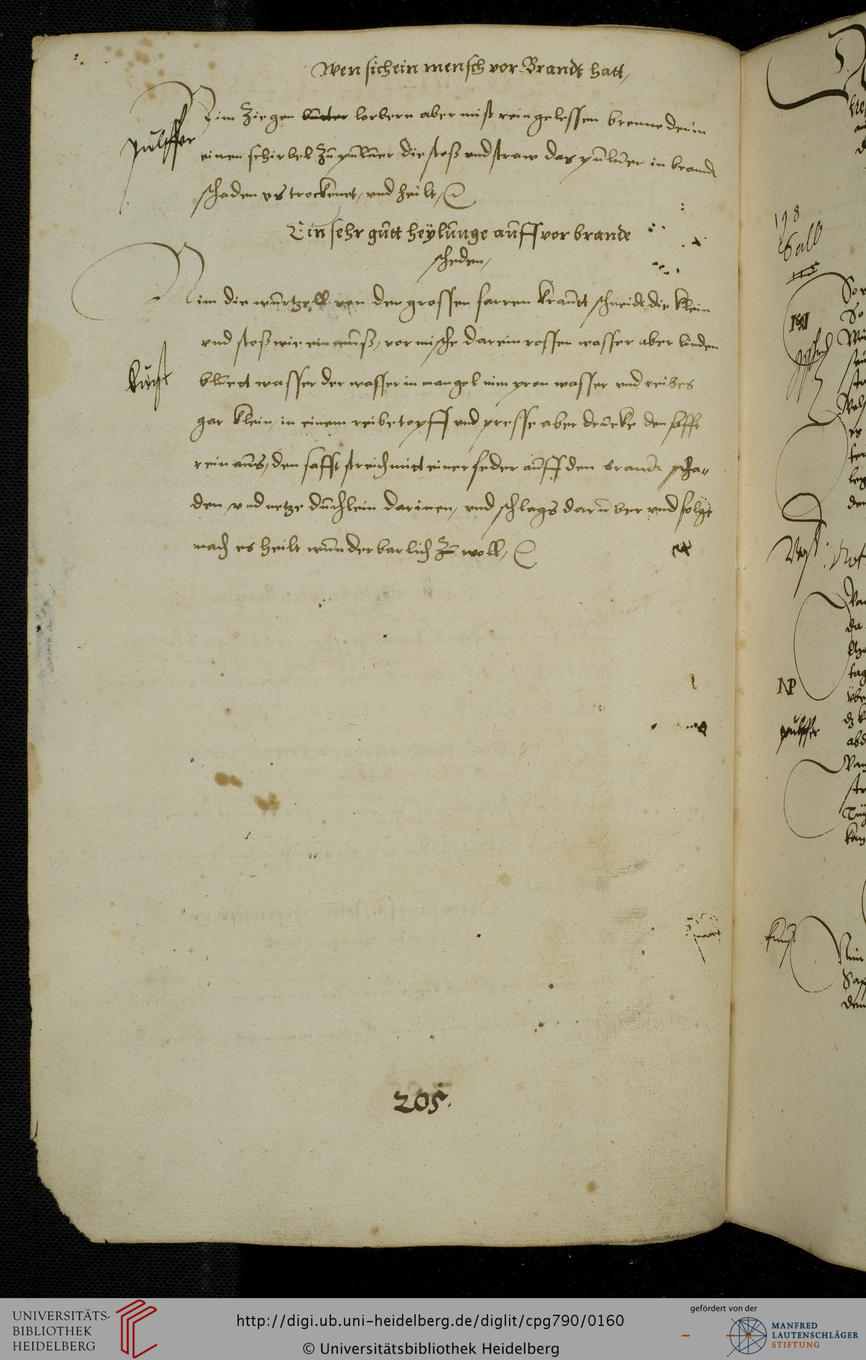 Wen sich ein mensch vor Brandt hatt,
pulffer
Nim Ziegen lorbern aber mist rein gelessen brenne den in
einen schirbel Zu puluer die stoß vnd straw das puluer in brandt
schaden es trockenet, vnd heilt,
Ein sehr gutt heÿlunge auff vor brande
scheden,
Nim die wurtzell von den grossen farren krautt schneidt die klein
vnd stoß wie ein muß, vor mische darein rossen wasser aber linden
kunst
bluedt wasser der wasser in mangel nim wasser vnd reib es
gar klein, in einem reibetopff vnd presse aber drucke den safft
rein aus, den safft streich mitt einer feder auff den brandt scha-
den vnd netze duchlein darinen, vnd schlags daruber vnd folge
nach es heilt wunderbarlich woll,
205.
198
Salb
NP
pulffer
kunst
Nim
UNIVERSITÄTS-
BIBLIOTHEK
HEIDELBERG
http://digi.ub.uni-heidelberg.de/diglit/cpg790/0160
© Universitätsbibliothek Heidelberg
gefördert von der
MANFRED
LAUTENSCHLÄGER
STIFTUNG